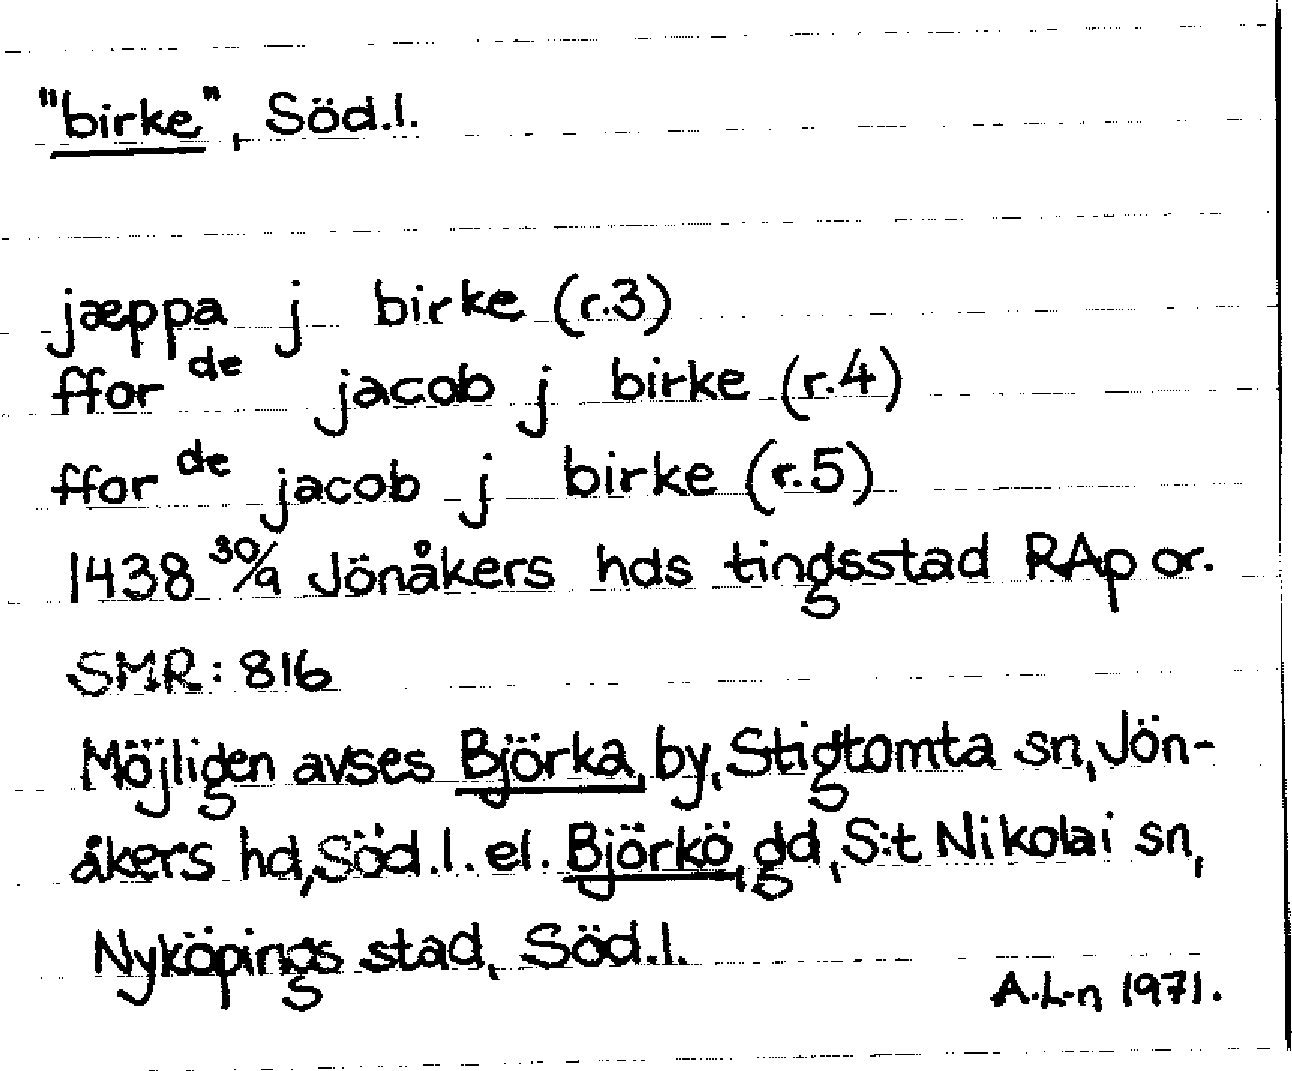 "birke", Söd.l.
jæppa j birke (r.3)
ffor de jacob j birke (r.4)
ffor de jacob j birke (r.5)
1438 30/9 Jönåkers hds tingsstad RAp or.
SMR: 816
Möjligen avses Björka, by, Stigtomta sn, Jön-
åkers hd, Söd.l. el. Björkö, gd, S:t Nikolai sn,
Nyköpings stad, Söd.l.
A.L-n 1971.